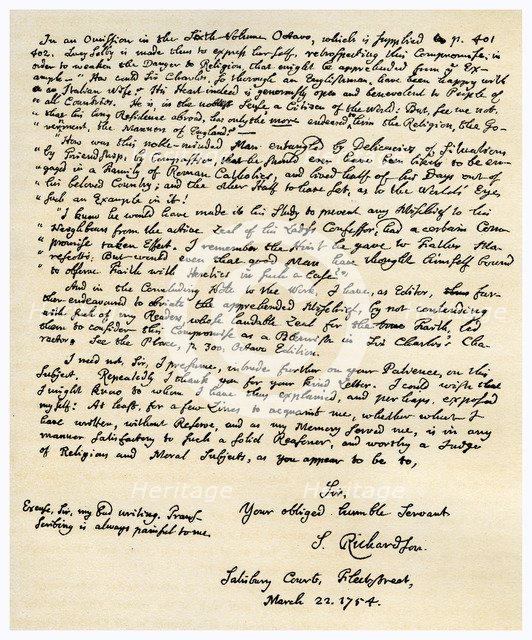 In an Omission in the Sixth Volume Octavo, which is supplied p. 401
402. Lucy Selby is made thus to express herself, retrospecting this Compromise; in
order to weaken the Danger to Religion, that might be apprehended from ye Ex-
ample — "How could Sir Charles, so thorough an Englishman, have been happy with
" an Italian Wife? His Heart indeed is generously open and benevolent to People of
" all Countries. He is, in the noblest Sense a Citizen of the World: But, see we not,
" that his long Residence abroad, has only the more endeared to him the Religion, the Go-
" vernment, the Manners of England? —
" How was this noble-minded Man entangled by Delicacies of Situation,
" by Friendship, by Compassion, that he should ever have been likely to be en-
" gaged in a Family of Roman Catholics, and lived half of his Days out of
" his beloved Country; and the other Half to have set, as to the World's Eye,
" such an Example in it!
" I know he would have made it his Study to prevent any Mischief to his
" Neighbours from the active Zeal of his Lady's Confessor, had a certain Com-
" promise taken Effect. I remember the Hint he gave to Father Ma-
" rescotti: But would even that good Man have thought himself bound
" to observe Faith with Heretics in such a Case?"
And in the Concluding Note to the Work, I have, as Editor, fur-
ther endeavoured to obviate the apprehended Mischief, by not contending
with such of my Readers, whose laudable Zeal for the true Faith, led
them to consider this Compromise as a Blemish in Sir Charles's Cha-
racter. See the Place, p. 300, Octavo Edition.
I need not, Sir, I presume, intrude further on your Patience, on this
Subject. Repeatedly I thank you for your kind Letter. I could wish that
I might know to whom I have thus explained, and perhaps exposed
myself: At least, for a few Lines to acquaint me, whether what I
have written, without Reserve, and as my Memory served me, is in any
manner Satisfactory to such a solid Reasoner, and worthy a Judge
of Religious and Moral Subjects, as you appear to be to,
Sir,
Your obliged humble Servant
S. Richardson.
Excuse, Sir, my bad writing. Trans-
scribing is always painful to me.
Salisbury Court, Fleetstreet,
March 22. 1754.
Heritage
Heritage